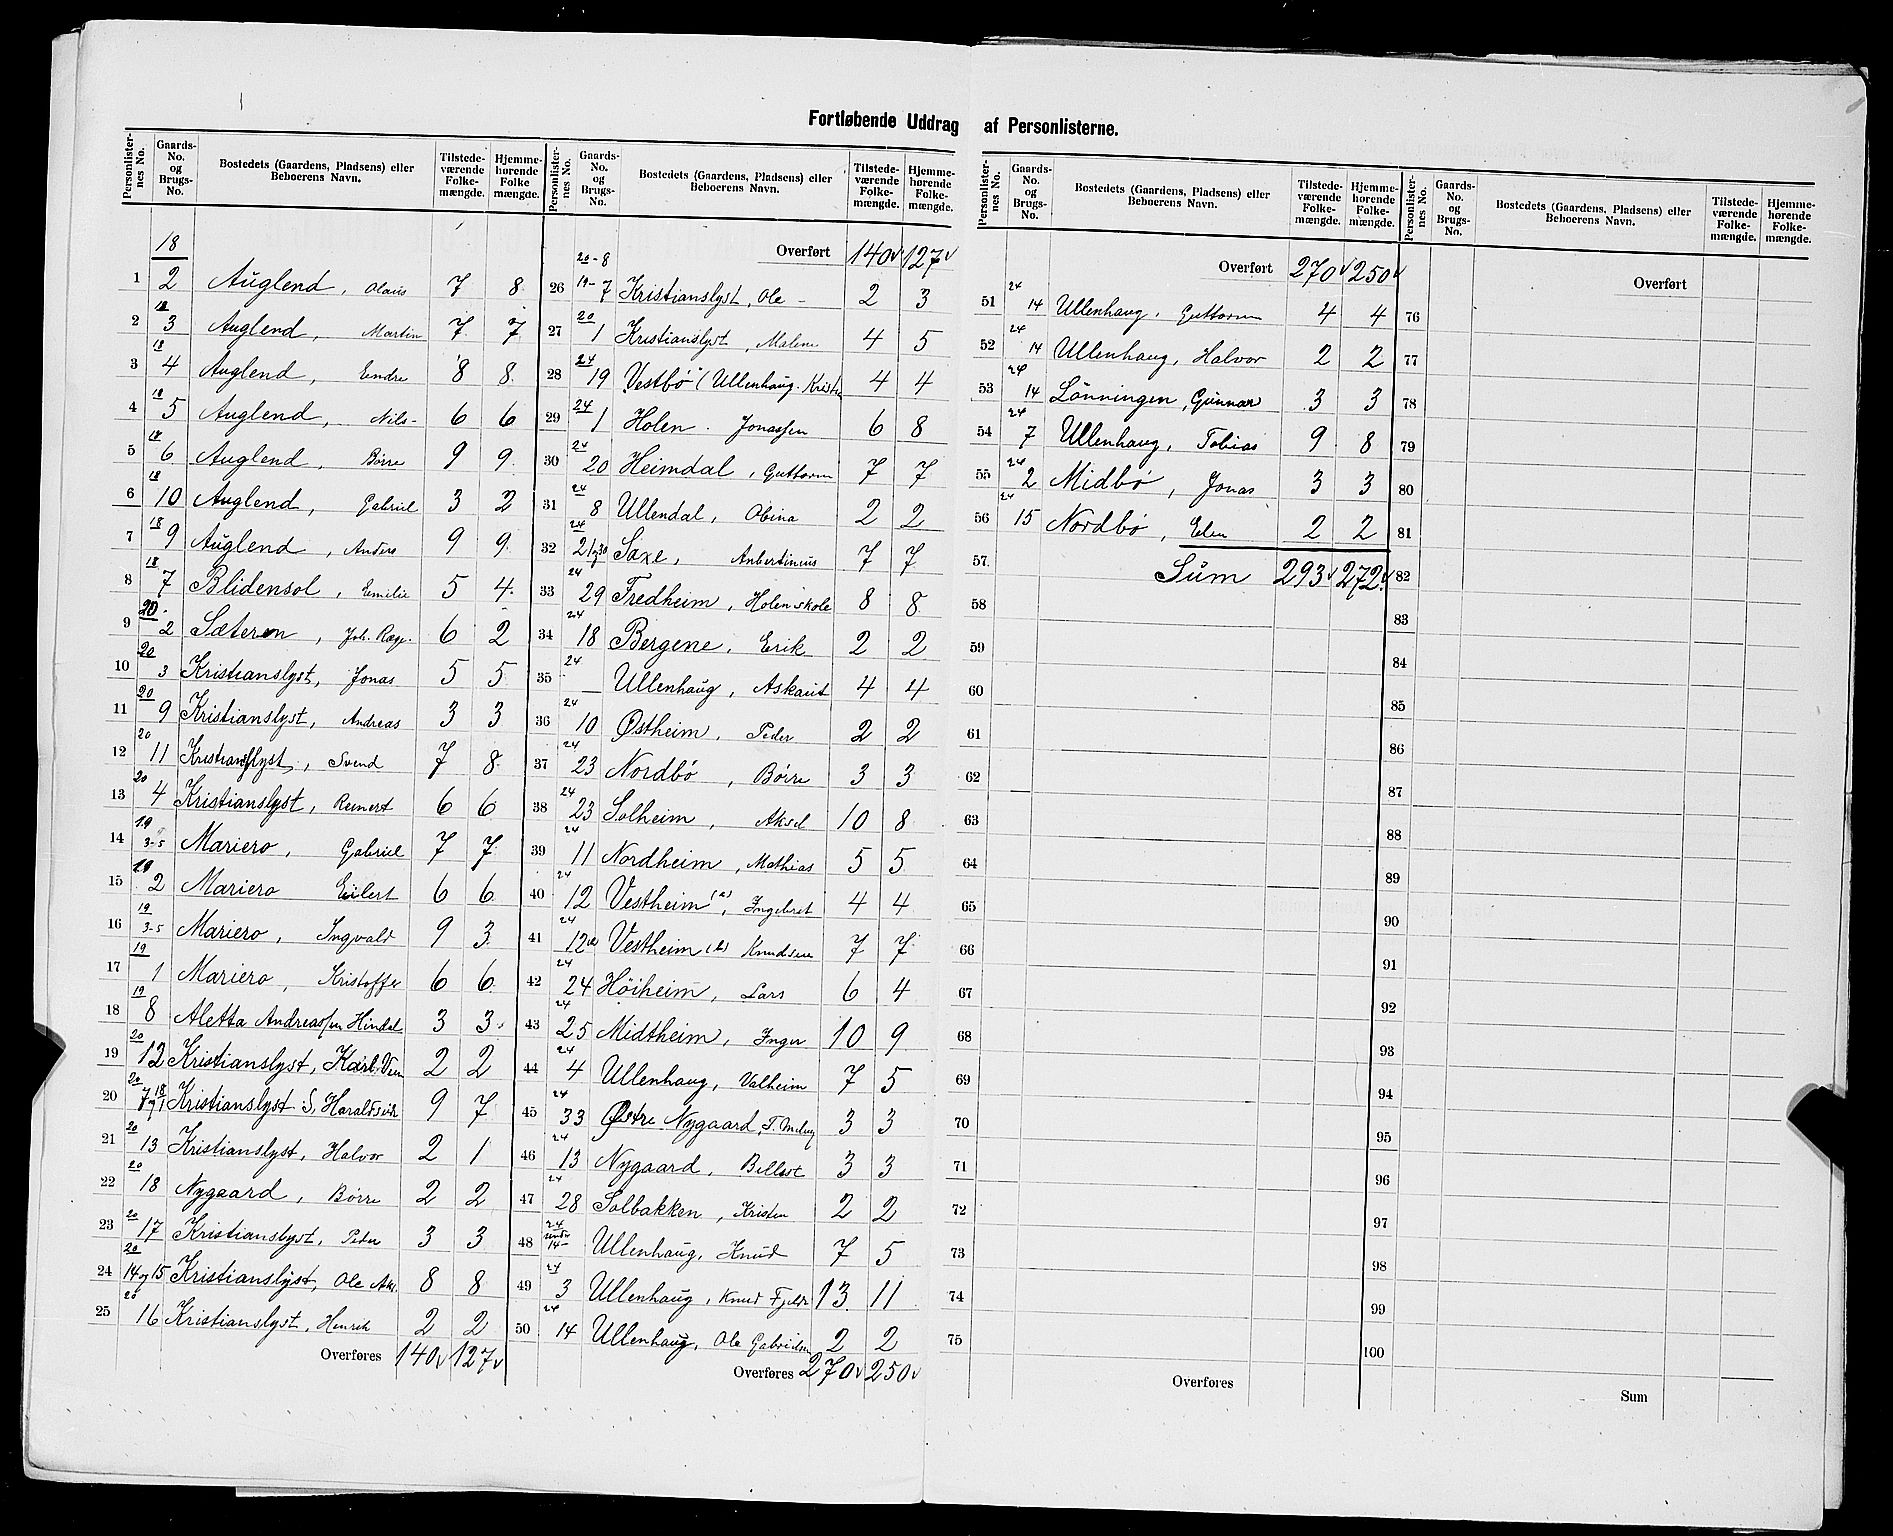 Fortløbende Uddrag af Personlisterne.
Personlister-nes No. | Gaards-No. og Brugs-No. | Bostedets (Gaardens, Pladsens) eller Beboerens Navn. | Tilstede-værende Folke-mængde. | Hjemme-hørende Folke mængde.
1 | 18/2 | Auglend, Olaus | 7 | 8
2 | 18/3 | Auglend, Martin | 7 | 7
3 | 18/4 | Auglend, Endre | 8 | 8
4 | 18/5 | Auglend, Nils- | 6 | 6
5 | 18/6 | Auglend, Børre | 9 | 9
6 | 18/10 | Auglend, Gabriel | 3 | 2
7 | 18/9 | Auglend, Anders | 9 | 9
8 | 18/7 | Blidensol, Emilie | 5 | 4
9 | 20/2 | Sæteren, Joh. Rage. | 6 | 2
10 | 20/3 | Kristianslyst, Jonas | 5 | 5
11 | 20/9 | Kristianslyst, Andreas | 3 | 3
12 | 20/11 | Kristianslyst, Svend | 7 | 8
13 | 20/4 | Kristianslyst, Reinert | 6 | 6
14 | 19/3-5 | Mariero, Gabriel | 7 | 7
15 | 19/2 | Mariero Eilert | 6 | 6
16 | 19/3-5 | Mariero, Ingvald | 9 | 3
17 | 19/1 | Mariero, Kristoffer | 6 | 6
18 | 19/8 | Aletta Andreassen Hindal | 3 | 3
19 | 20/12 | Kristianslyst, Karl | 2 | 2
20 | 20/7 og 18/1 | Kristianslyst S. Haraldsvik | 9 | 7
21 | 20/13 | Kristianslyst, Halvor | 2 | 1
22 | 20/18 | Nygaard, Børre | 2 | 2
23 | 20/17 | Kristianslyst, Peder | 3 | 3
24 | 20/14 og 15 | Kristianslyst, Ole Ask. | 8 | 8
25 | 20/16 | Kristianslyst, Henrik | 2 | 2
Overføres | 140 | 127
Personlister-nes No. | Gaards-No. og Brugs-No. | Bostedets (Gaardens, Pladsens) eller Beboerens Navn. | Tilstede-værende Folke-mængde. | Hjemme-hørende Folke-mængde.
Overført | 140 | 127
26 | 20-8 19-7 | Kristianslyst, Ole - | 2 | 3
27 | 20/1 | Kristianslyst, Malene | 4 | 5
28 | 24/19 | Vestbø (Ullenhaug. | 4 | 4
29 | 24/1 | Holen. Jonassen | 6 | 8
30 | 24/20 | Heimdal, Guttorm | 7 | 7
31 | 24/8 | Ullendal, Obina | 2 | 2
32 | 24/21 og 30 | Saxe, Anbertinius | 7 | 7
33 | 24/29 | Fredheim, Holen skole | 8 | 8
34 | 24/18 | Bergene, Erik | 2 | 2
35 | 24/— | Ullenhaug, Askaut | 4 | 4
36 | 24/10 | Østheim, Peder | 2 | 2
37 | 24/23 | Nordbø, Børre | 3 | 3
38 | 24/23 | Solheim, Aksel | 10 | 8
39 | 24/11 | Nordheim, Mathias | 5 | 5
40 | 24/12 | Vestheim (a), Ingebret | 4 | 4
41 | 24/12 | Vestheim (b) Knudsen | 7 | 7
42 | 24/24 | Høiheim, Lars | 6 | 4
43 | 24/25 | Midtheim, Inger | 10 | 9
44 | 24/4 | Ullenhaug, Valheim | 7 | 5
45 | 24/33 | Østre Nygaard, T. | 3 | 3
46 | 24/13 | Nygaard, | 3 | 3
47 | 24/28 | Solbakken, Kristen | 2 | 2
48 | 24/under 14- | Ullenhaug, Knud | 7 | 5
49 | 24/3 | Ullenhaug, Knud | 13 | 11
50 | 24/14 | Ullenhaug, Ole Gabrielsen | 2 | 2
Overføres | 270 | 250
Personlister-nes No. | Gaards-No. og Brugs-No. | Bostedets (Gaardens, Pladsens) eller Beboerens Navn. | Tilstede-værende Folke-mængde. | Hjemme-hørende Folke-mængde.
Overført | 270 | 250
51 | 24/14 | Ullenhaug, Guttorm | 4 | 4
52 | 24/14 | Ullenhaug, Halvor | 2 | 2
53 | 24/14 | Lönningen, Gunnar | 3 | 3
54 | 24/7 | Ullenhaug, Tobias | 9 | 8
55 | 24/2 | Midbø, Jonas | 3 | 3
56 | 24/15 | Nordbø, Elen | 2 | 2
57 | Sum | 293 | 272
58
59
60
61
62
63
64
65
66
67
68
69
70
71
72
73
74
75
Overføres
Personlister-nes No. | Gaards-No. og Brugs-No. | Bostedets (Gaardens, Pladsens) eller Beboerens Navn. | Tilstede-værende Folke-mængde. | Hjemme-hørende Folke-mængde.
Overført
76
77
78
79
80
81
82
83
84
85
86
87
88
89
90
91
92
93
94
95
96
97
98
99
100
Sum